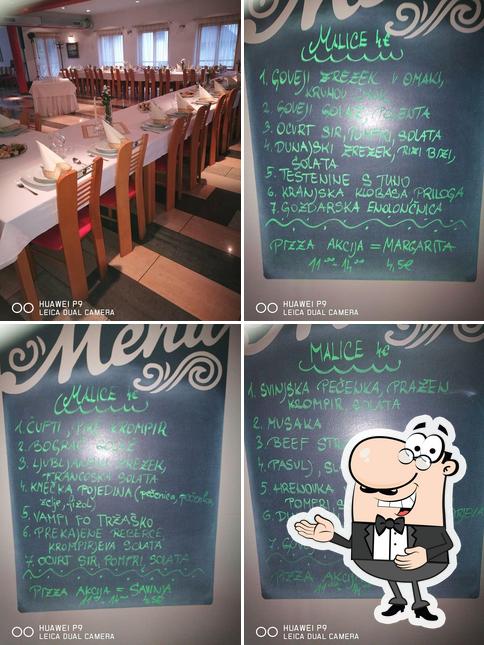 HUAWEI P9
LEICA DUAL CAMERA
MALICE 4€
1. GOVEJI ZREZEK V OMAKI,
KRUHOV
2. GOVEJI GOLAŽ, POLENTA
3. OCVRT SIR, POMFRI, SOLATA
4. DUNAJSKI ZREZEK, RIZI BIZI,
SOLATA
5. TESTENINE S TUNO
6. KRANJSKA KLOBASA, PRILOGA
7. GOZDARSKA ENOLONČNICA
PIZZA AKCIJA = MARGARITA
11⁰⁰-14⁰⁰ 4,5€
HUAWEI P9
LEICA DUAL CAMERA
Menu
MALICE 4€
1. ČUFTI, PIRE KROMPIR
2. BOGRAČ
3. LJUBLJANSKI ZREZEK,
FRANCOSKA SOLATA
4. KMEČKA POJEDINA (pečenica,
zelje, fižol)
5. VAMPI PO TRŽAŠKO
6. PREKAJENE
KROMPIRJEVA SOLATA
7. OCVRT SIR, POMFRI, SOLATA
PIZZA AKCIJA = SAVINJA
11⁰⁰-14⁰⁰ 4,5€
HUAWEI P9
LEICA DUAL CAMERA
MALICE 4€
1. SVINJSKA PEČENKA, PRAŽEN
KROMPIR, SOLATA
2. MUSAKA
3. BEEF
4. PASULJ,
5. HRENOVKA
POMFRI,
6.
7.
PIZZA
HUAWEI P9
LEICA DUAL CAMERA